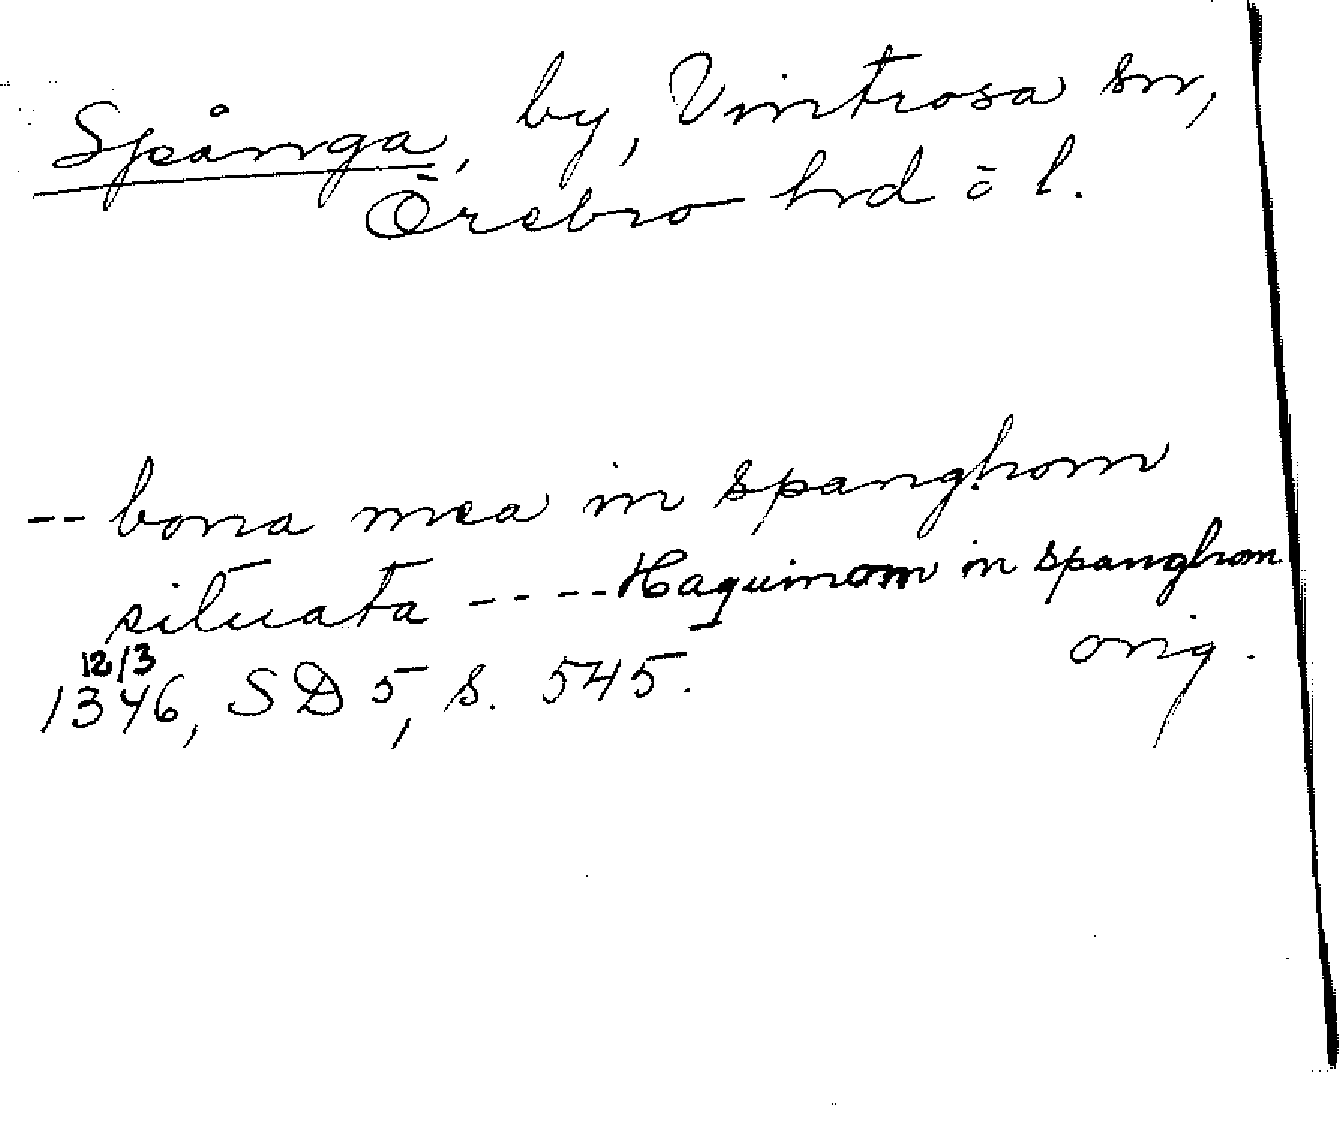 Spånga, by, Vintrosa sn,
Örebro hrd o l.
-- bona mea in spanghom
situata ---- Haquinom in spanghom
orig.
12/3
1346, SD 5, s. 545.